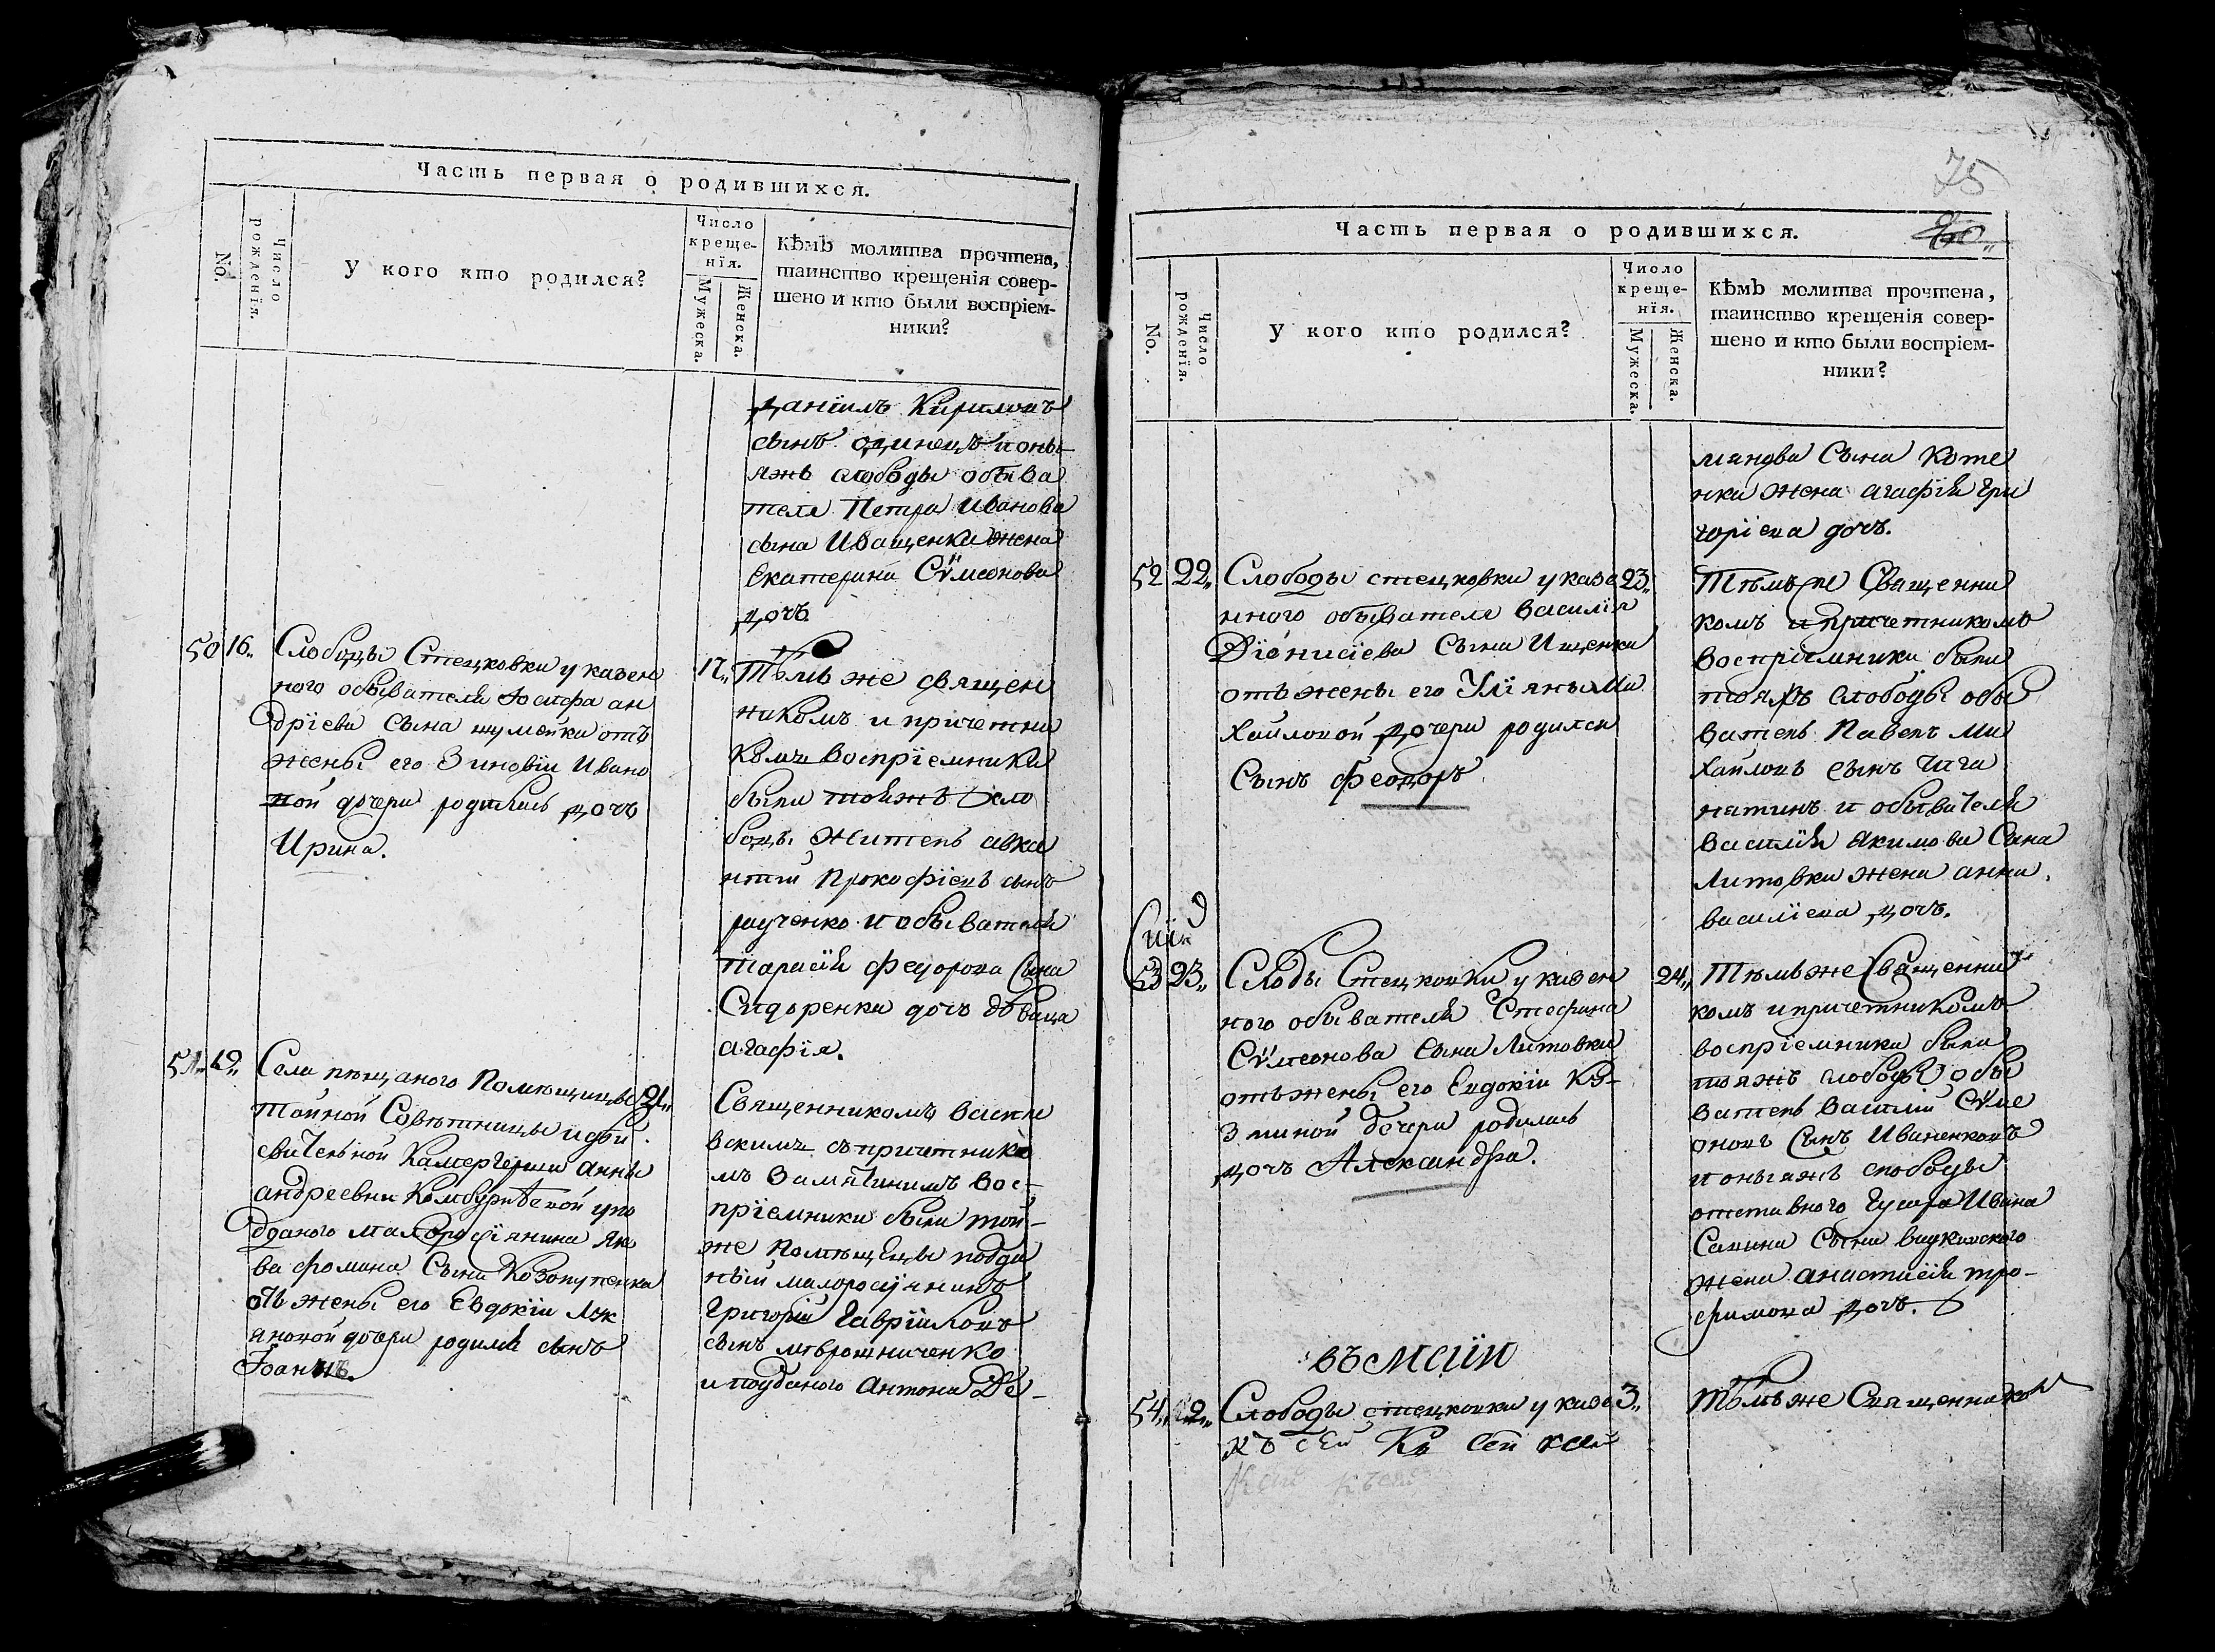 Часть первая о родившихся.
No.
Число рожденїя.
У кого кто родился?
Число
креще-
нїя.
Мужеска.
Женска.
Кѣмъ молитва прочтена,
таинство крещенїя совер-
шено и кто были воспрїем-
ники?
Данїилъ Кириловъ
сынъ одинецъ и оныя
яжъ слободы обыва
теля Петра Иванова
сына Иващенка жена
Екатерина Сѵмеонова
дочъ.
50 16. Слободы Стецковки у казен
ного обывателя Іосифа ан
дрїева сына шумейки отъ
жены его Зиновїи Ивано
вой дочери родилась дочъ
Ирина.
17. Тѣмъ же священ
никомъ и причетни
комъ воспрїемники
были тояжъ сло
боды житель авка
нтїй Прокофїевъ сынъ
рученко и обывателя
тарасїя федорова Сына
Сидоренка дочъ дѣвица
агафїя.
51 19. Села пѣщаного Помѣщицы
тайной Совѣтницы и дѣй
свителной Камергерши Анны
андреевны Комбурлѣевой у по
дданого малоросїянина Яко
ва фомина Сына Козопупенка
отъ жены его Евдокїи Лук
яновой дочери родился сынъ
Іоаннъ.
21. Священникомъ васили
вскимъ съ причетнико
мъ Замятинимъ вос-
прїемники были той-
же Помѣщицы подда
ный малоросїянинъ
Григорїй Гаврїиловъ
сынъ мѣрошниченко
и подданого Антона Де-
75
Часть первая о родившихся.
60
No.
Число рожденїя.
У кого кто родился?
Число
креще-
нїя.
Мужеска.
Женска.
Кѣмъ молитва прочтена,
таинство крещенїя совер-
шено и кто были воспрїем-
ники?
мянова Сына Коте
нка жена агафїя гри
горїева дочъ.
52 22. Слободы стецковки у казе
нного обывателя василїя
Дїонисїева Сына Ищенка
отъ жены его Улїяны Ми
хайловой дочери родился
Сынъ феодоръ
23. Тѣмъ же Священни
комъ и причетникомъ
воспрїемники были
тояжъ слободы обы
ватель Павелъ Ми
хайловъ сынъ Чига
нятинъ и обывателя
василїя Якимова Сына
Литовки жена анна
василїева дочъ.
53 23. Слоды Стецковки у казен
ного обывателя Стефана
Сѵмеонова Сына Литовки
отъ жены его Евдокїи Ку-
зминой дочери родилась
дочъ Александра.
24. Тѣмъ же Священни
комъ и причетникомъ
воспрїемники были
тояжъ слободы обы
ватель василїй Сѵме
оновъ Сынъ Иваненковъ
и оныяжъ слободы
отставного Гусара Ивана
Савина Сына
жена анастасїя тро-
фимова дочъ.
въ маїи
54. 2. Слободы стецковки у казе
3. Тѣмъ же Священником
къ сей Къ сей